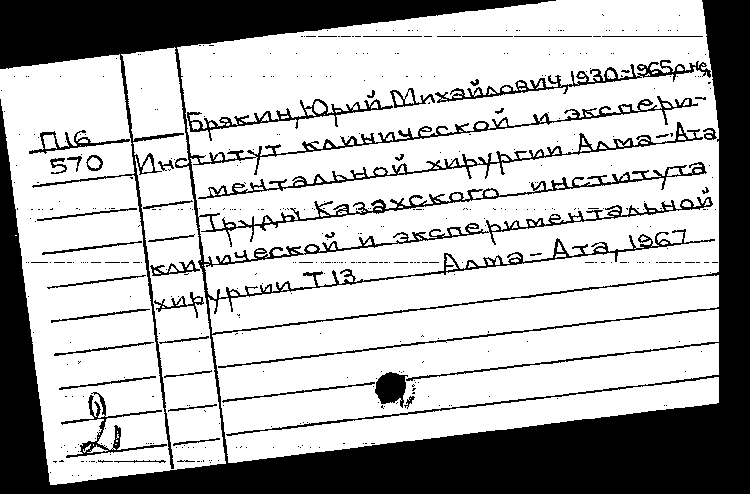 Брякин, Юрий Михайлович, 1930-1965, о не
П16
570
Институт клинической и экспери-
ментальной хирургии. Алма-Ата
Труды Казахского института
клинической и экспериментальной
хирургии Т. 13. Алма-Ата, 1967
2